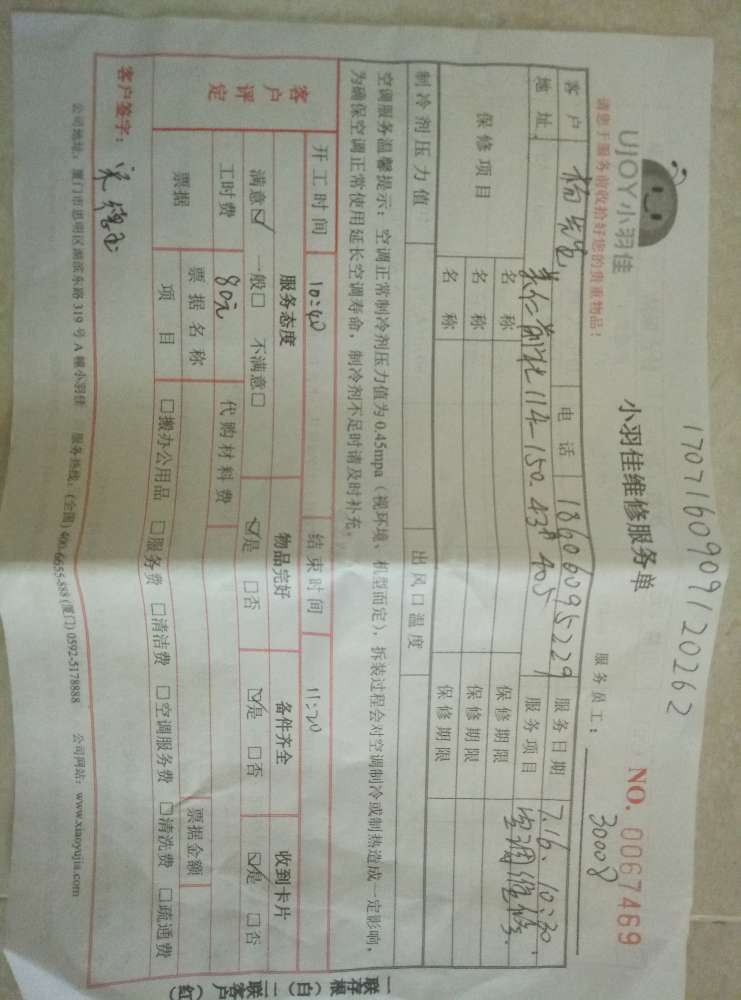 1707160909120262
UJOY小羽佳
小羽佳维修服务单
NO. 0067469
请您于服务前收拾好您的贵重物品！
服务员工： 30008
客户 杨先生 电话 18606095229 服务日期 7.16. 10:30
地址 114-150.43# 405 服务项目 空调维修.
保修项目 名称 保修期限
名称 保修期限
名称 保修期限
制冷剂压力值 出风口温度
空调服务温馨提示：空调正常制冷剂压力值为0.45mpa（视环境、机型而定），拆装过程会对空调制冷或制热造成一定影响，
为确保空调正常使用延长空调寿命，制冷剂不足时请及时补充。
开工时间 10:40 结束时间 11:20
客户评定
服务态度 物品完好 备件齐全 收到卡片
满意☑ 一般□ 不满意□ ☑是 □否 ☑是 □否 ☑是 □否
工时费 80元 代购材料费
票据 票据名称 票据金额
项目 □搬办公用品 □服务费 □清洁费 □空调服务费 □清洗费 □疏通费
客户签字：
公司地址：厦门市思明区湖滨东路319号A幢小羽佳 服务热线：(全国) 400-6655-888 (厦门) 0592-5178888 公司网站：www.xiaoyujia.com
一联存根（白）二联客户（红）